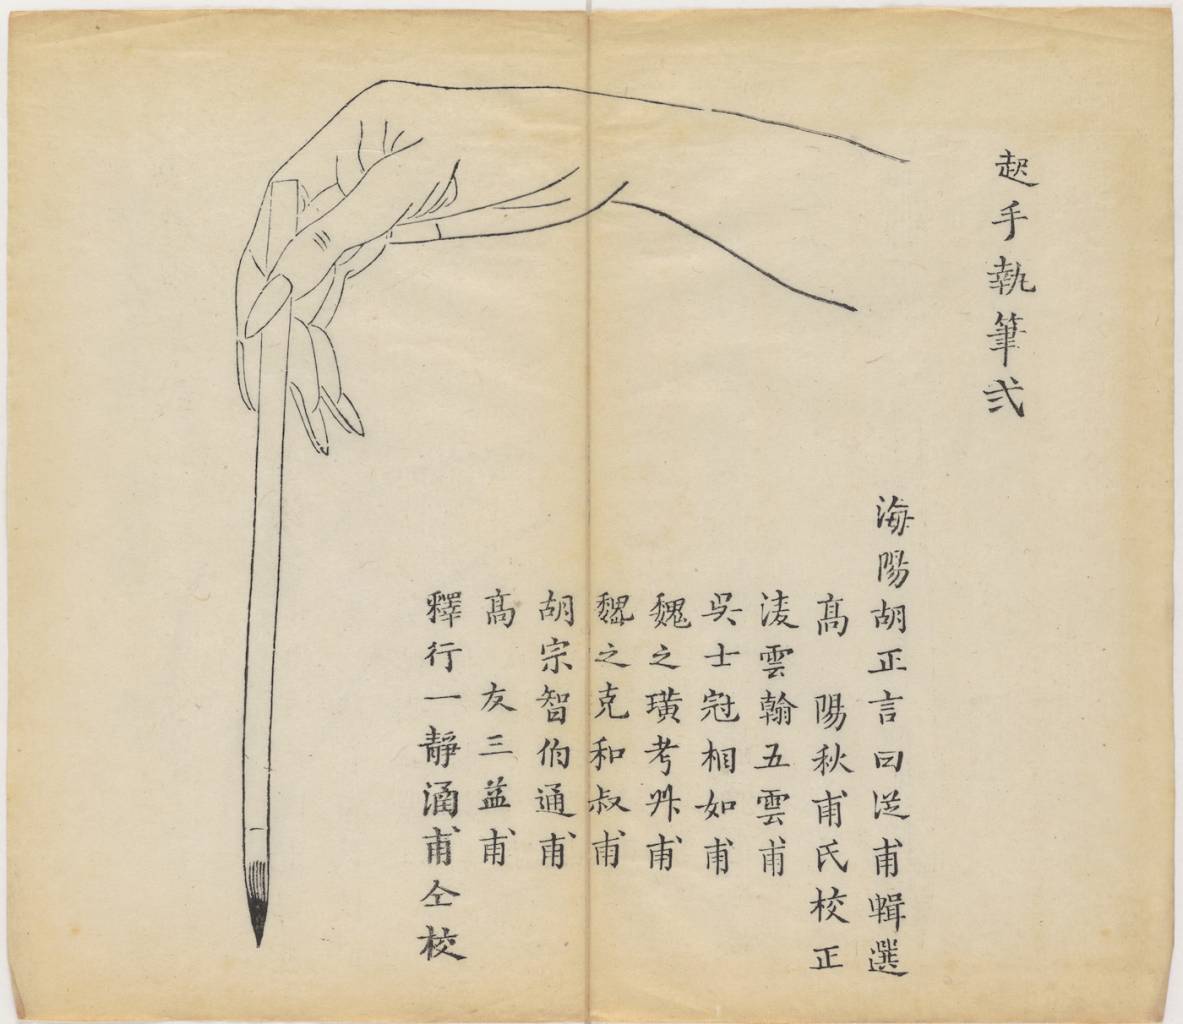 起手執筆弍
海陽胡正言曰从甫輯選
髙 陽秋甫氏校正
淩雲翰五雲甫
吳士冠相如甫
魏之璜考叔甫
魏之克和叔甫
胡宗智伯通甫
髙 友三益甫
釋行一静涵甫仝校